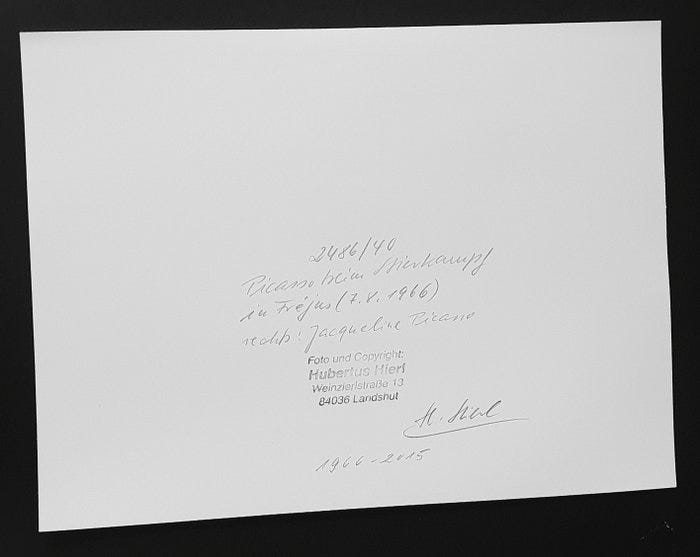 2486/40
Picasso beim Stierkampf
in Fréjus (7. V. 1966)
rechts: Jacqueline Picasso
Foto und Copyright:
Hubertus Hierl
Weinzierlstraße 13
84036 Landshut
H. Hierl
1966-2015